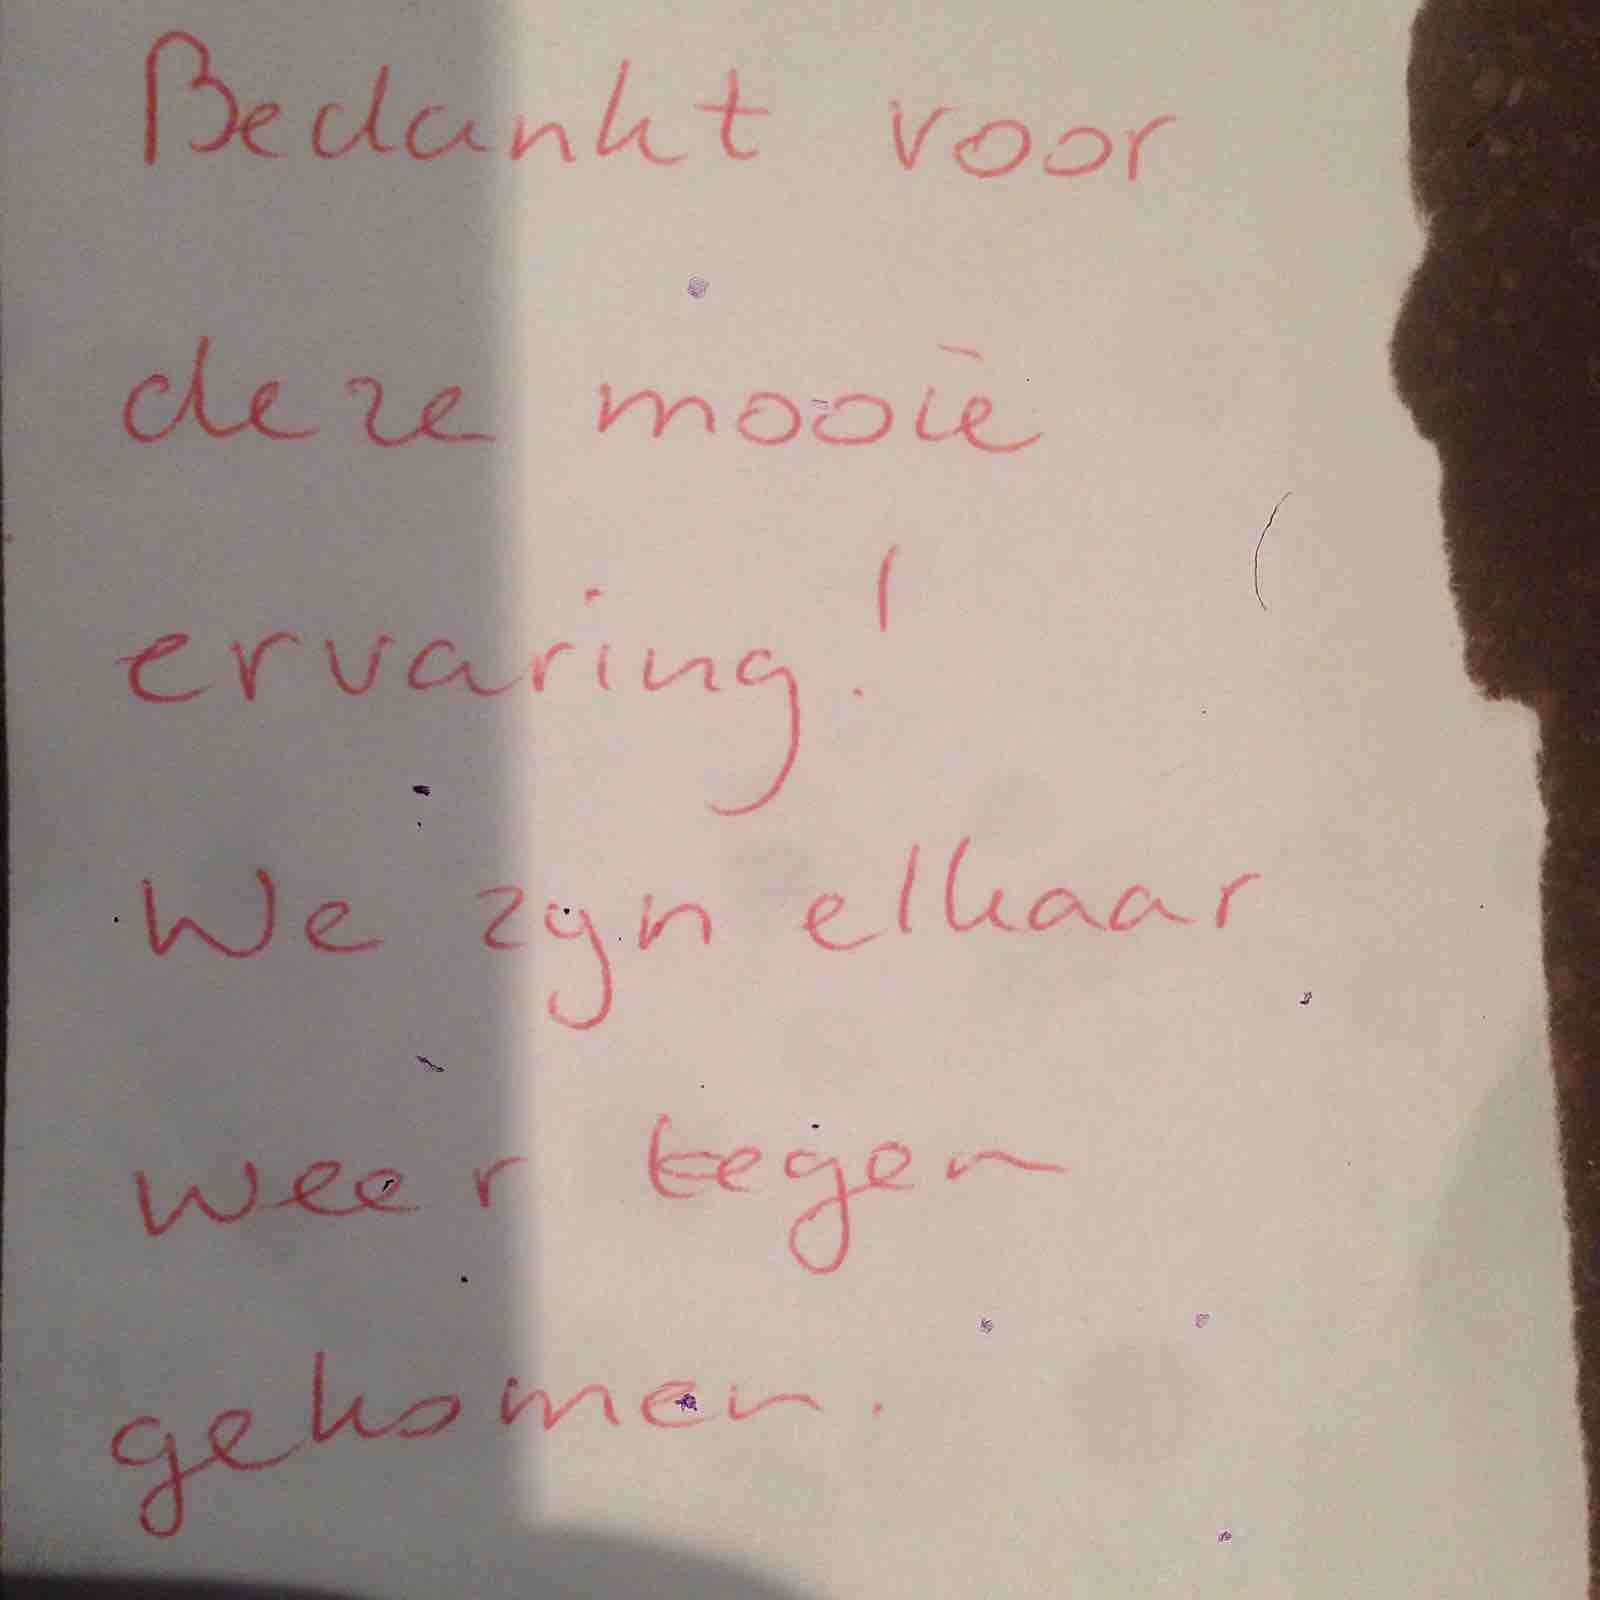 Bedankt voor
deze mooie
ervaring!
We zijn elkaar
weer tegen
gekomen.